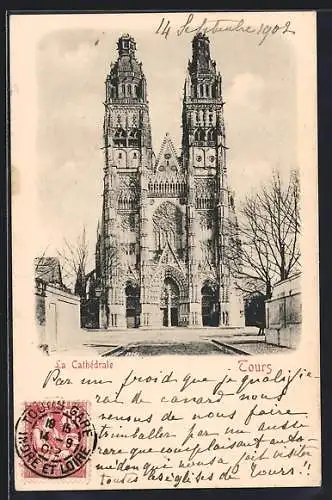 14 Septembre 1902
La Cathédrale
Tours
Par un froid que je qualifie-
rai de canard nous
venons de nous faire
trimballer par un auto-
médon que complaisant autant
que nous a fait visiter
toutes les églises de Tours !!
TOURS-GARE
18
14 -9
02
INDRE ET LOIRE